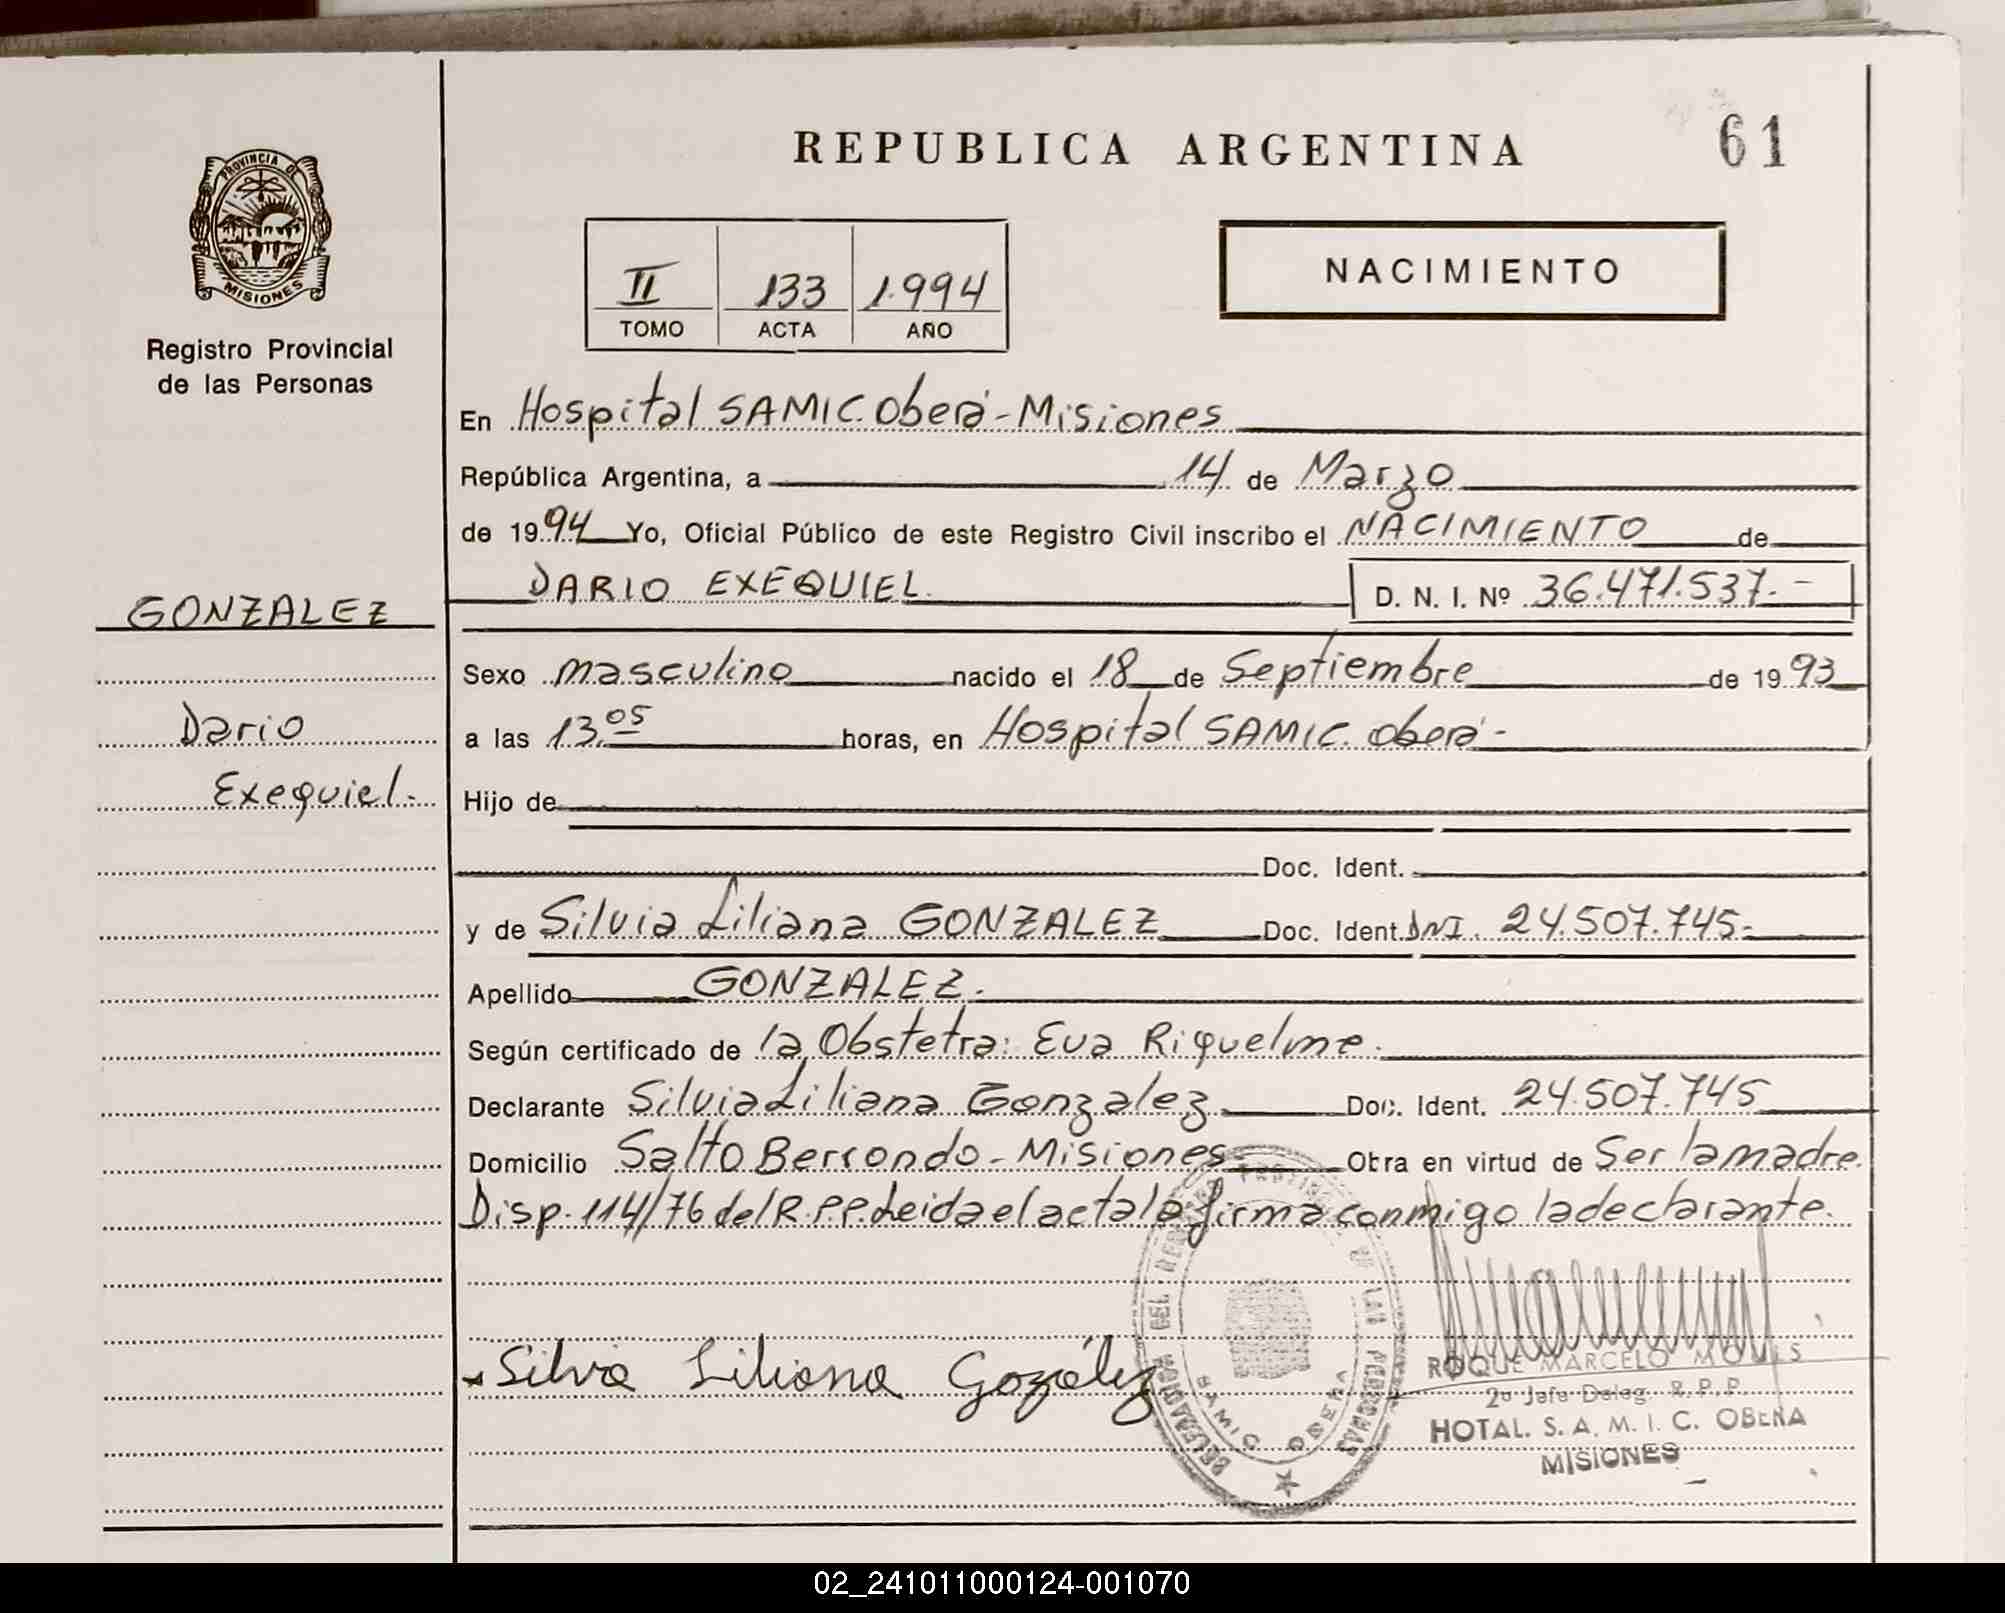 REPUBLICA ARGENTINA
61
PROVINCIA DE
MISIONES
Registro Provincial
de las Personas
II 133 1.994
TOMO ACTA AÑO
NACIMIENTO
En Hospital SAMIC. Oberá - Misiones
República Argentina, a 14 de Marzo
de 1994 Yo, Oficial Público de este Registro Civil inscribo el NACIMIENTO de
DARIO EXEQUIEL. D. N. I. Nº 36.471.537.-
GONZALEZ
Dario
Exequiel.-
Sexo masculino nacido el 18 de Septiembre de 1993
a las 13,05 horas, en Hospital SAMIC. Oberá -
Hijo de
Doc. Ident.
y de Silvia Liliana GONZALEZ Doc. Ident. DNI. 24.507.745.-
Apellido GONZALEZ.
Según certificado de la Obstetra: Eva Riquelme.
Declarante Silvia Liliana Gonzalez Doc. Ident. 24.507.745
Domicilio Salto Berrondo - Misiones Obra en virtud de Ser la madre.
Disp. 114/76 del R.P.P. Leida el acta la firma conmigo la declarante.
Silvia Liliana Gozález
DELEGACION DEL REGISTRO PROVINCIAL DE LAS PERSONAS
SAMIC OBERA
ROQUE MARCELO
2º Jefe Deleg. R.P.P.
HOTAL. S. A. M. I. C. OBERA
MISIONES
02_241011000124-001070